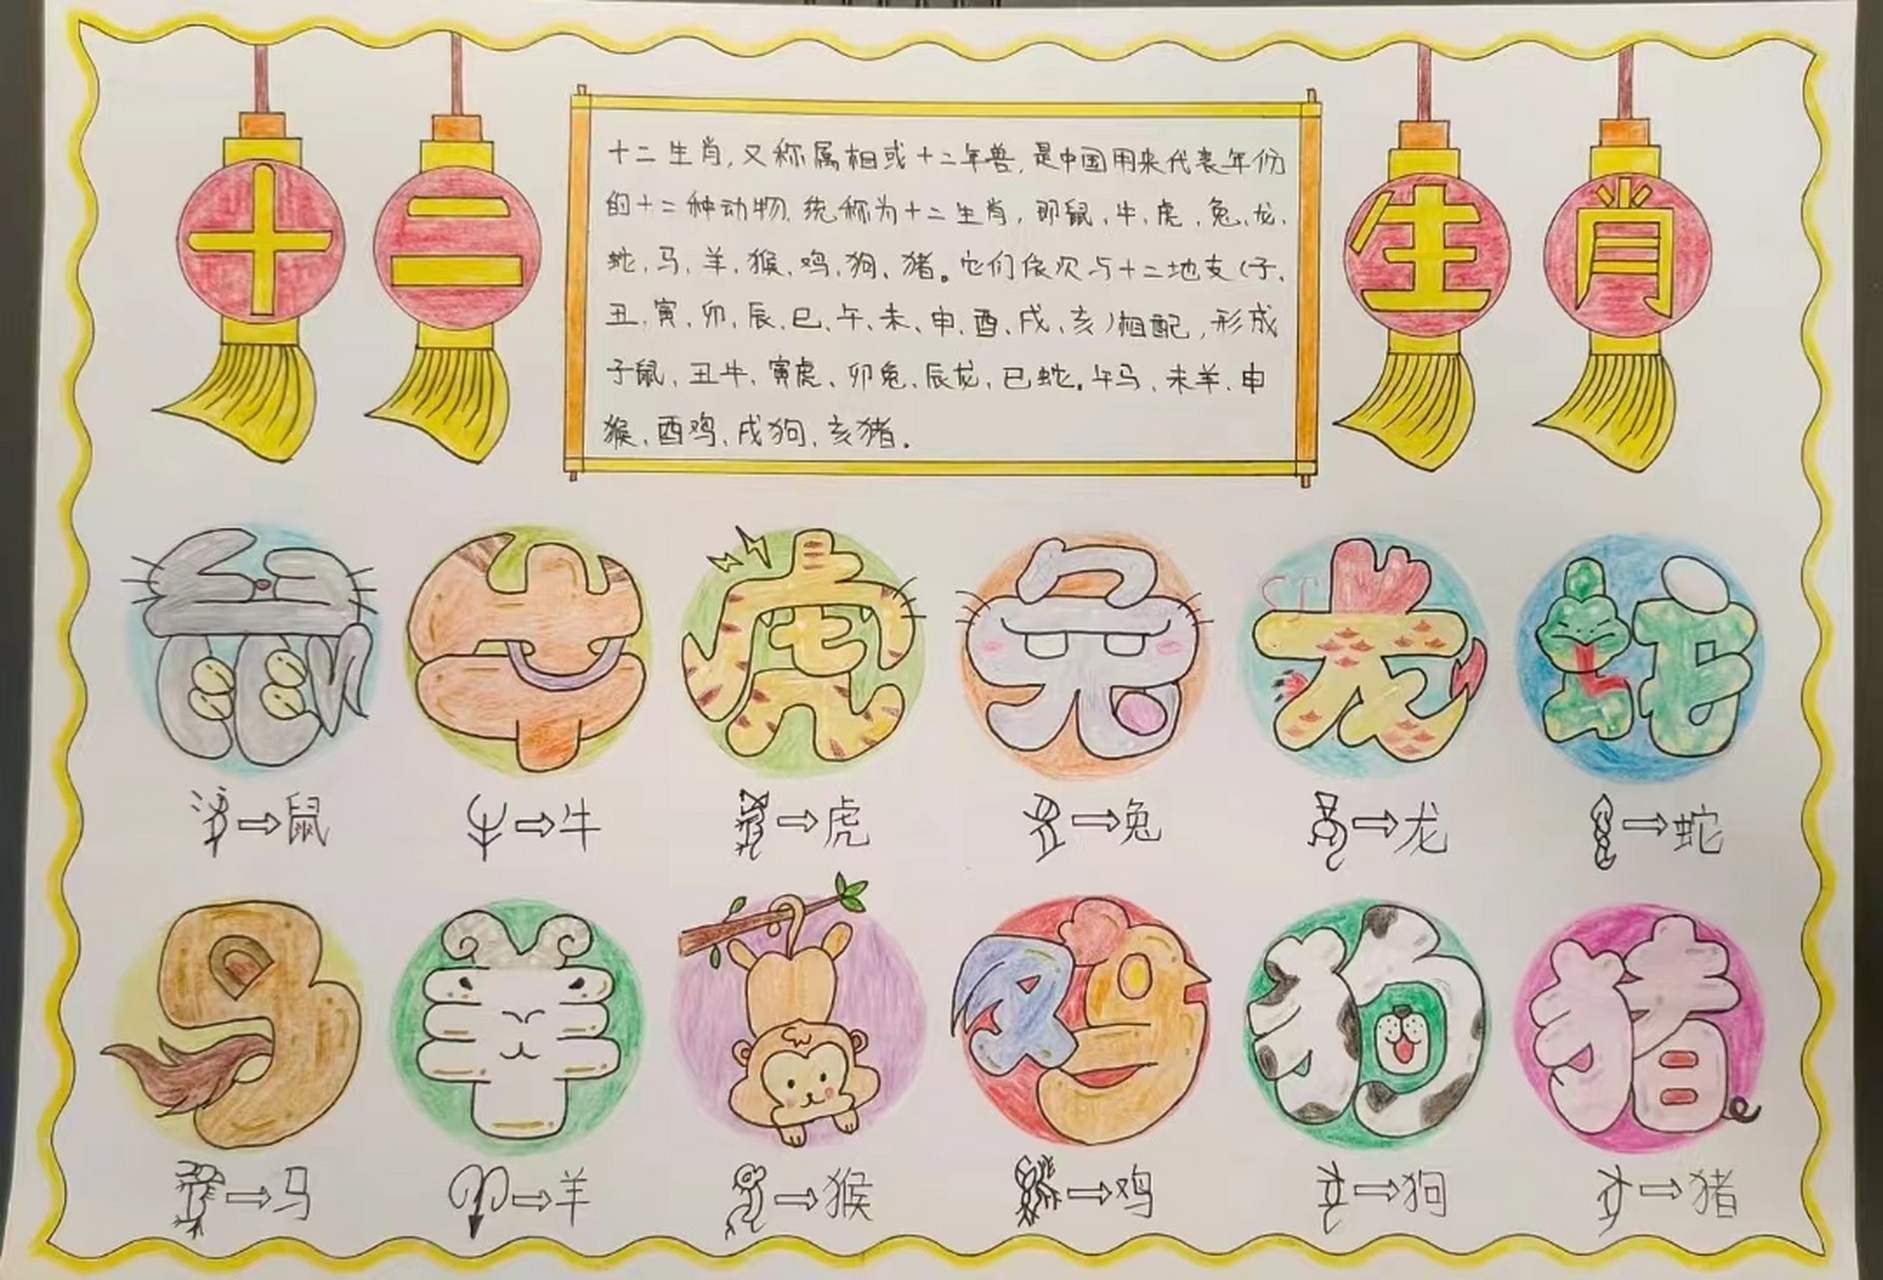 十二生肖
十二生肖，又称属相或十二年兽，是中国用来代表年份
的十二种动物，统称为十二生肖，即鼠、牛、虎、兔、龙、
蛇、马、羊、猴、鸡、狗、猪。它们依次与十二地支（子、
丑、寅、卯、辰、巳、午、未、申、酉、戌、亥）相配，形成
子鼠、丑牛、寅虎、卯兔、辰龙、巳蛇。午马、未羊、申
猴、酉鸡、戌狗、亥猪。
鼠 牛 虎 兔 龙 蛇
→鼠 →牛 →虎 →兔 →龙 →蛇
马 羊 鸡 狗 猪
→马 →羊 →猴 →鸡 →狗 →猪